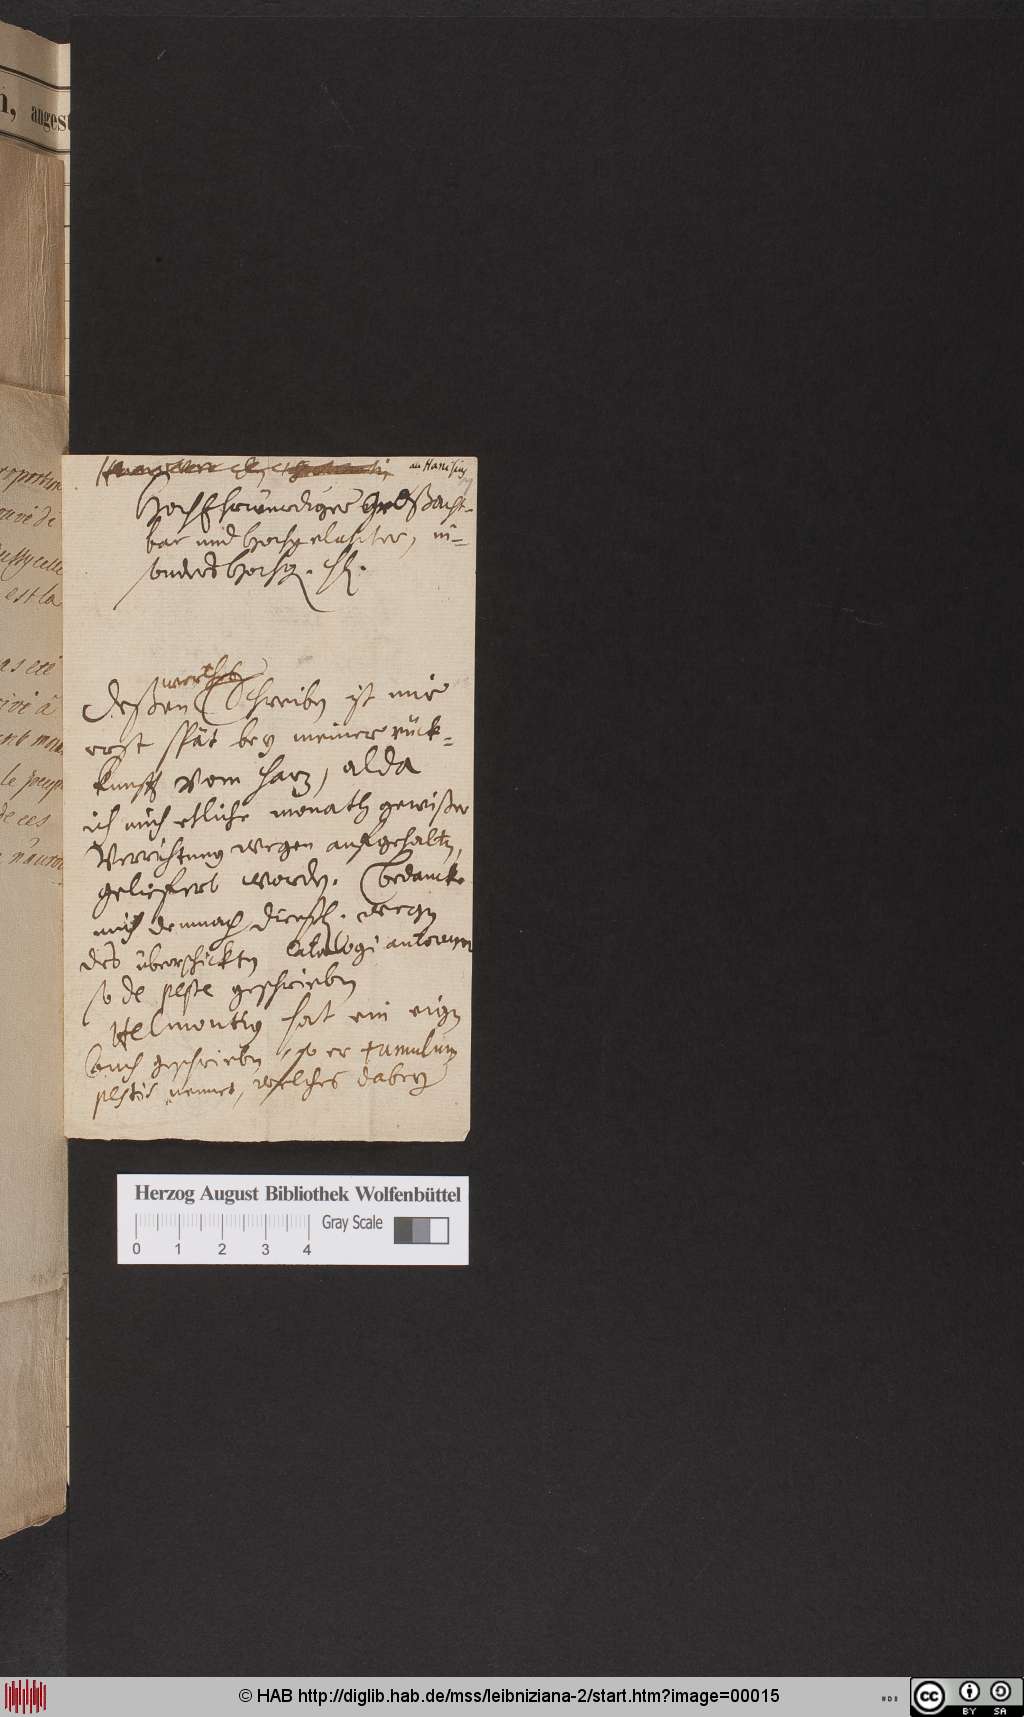 n, angest
an Hanisius
HochEhrwürdiger Großacht-
bar und Hochgelahrter, in-
sonders Hochg. H.
werthes
Deßen Schreiben ist mir
erst spät bey meiner rück-
kunfft vom Harz, alda
ich mich etliche monath gewißer
Verrichtung wegen auffgehalten,
geliefert worden. Bedancke
mich demnach dienstl. wegen
des überschickten Catalogi autorum
so de peste geschrieben
Helmontius hat ein eigen
buch geschrieben, so er tumulum
pestis nennet, welches dabey
Herzog August Bibliothek Wolfenbüttel
Gray Scale
0 1 2 3 4
© HAB http://diglib.hab.de/mss/leibniziana-2/start.htm?image=00015
cc BY SA